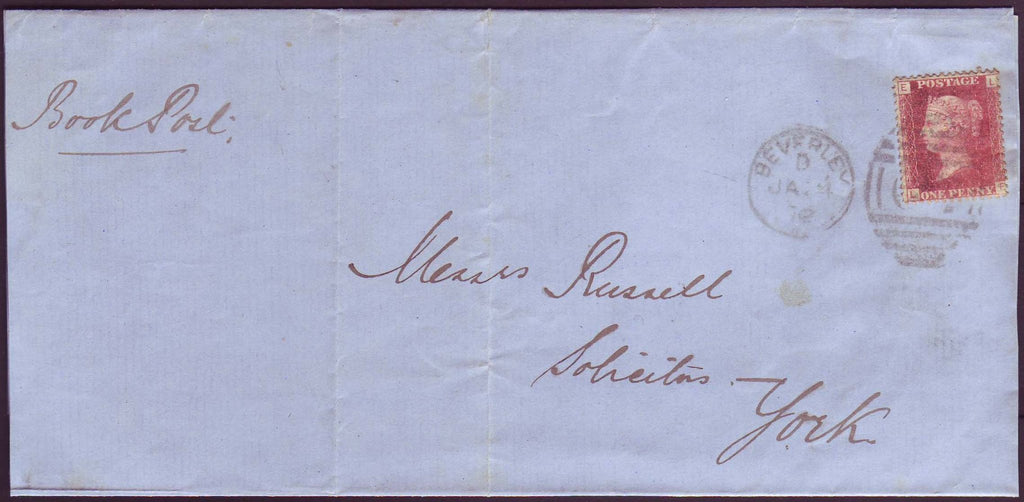 Book Post.
E L
POSTAGE
BEVERLEY
D
JA 4
ONE PENNY
L E
Messrs Russell
Solicitors
York